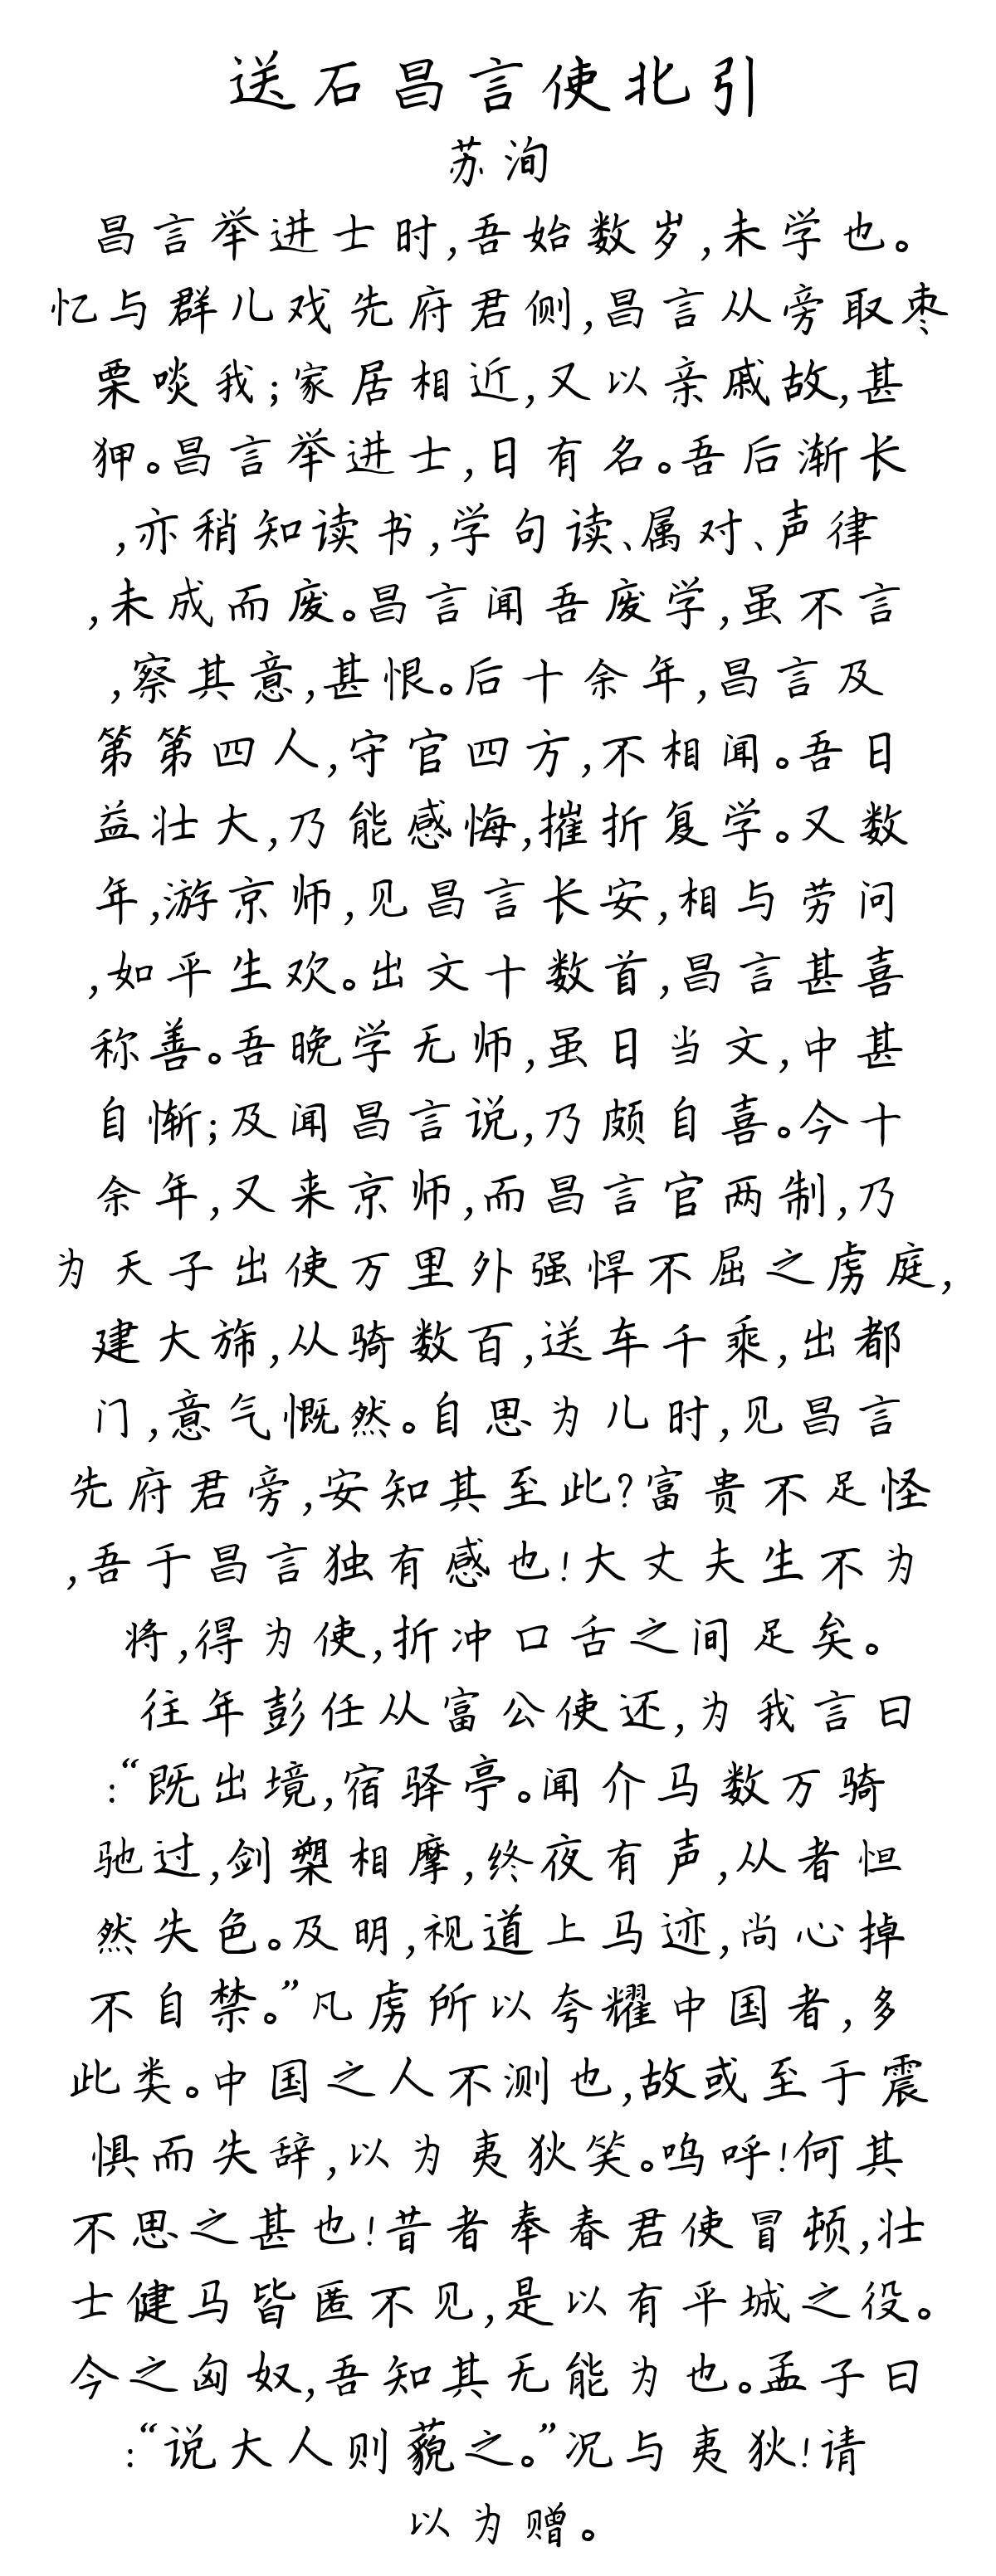 送石昌言使北引
苏洵
昌言举进士时,吾始数岁,未学也。
忆与群儿戏先府君侧,昌言从旁取枣
栗啖我;家居相近,又以亲戚故,甚
狎。昌言举进士,日有名。吾后渐长
,亦稍知读书,学句读、属对、声律
,未成而废。昌言闻吾废学,虽不言
,察其意,甚恨。后十余年,昌言及
第第四人,守官四方,不相闻。吾日
益壮大,乃能感悔,摧折复学。又数
年,游京师,见昌言长安,相与劳问
,如平生欢。出文十数首,昌言甚喜
称善。吾晚学无师,虽日当文,中甚
自惭;及闻昌言说,乃颇自喜。今十
余年,又来京师,而昌言官两制,乃
为天子出使万里外强悍不屈之虏庭,
建大旆,从骑数百,送车千乘,出都
门,意气慨然。自思为儿时,见昌言
先府君旁,安知其至此?富贵不足怪
,吾于昌言独有感也!大丈夫生不为
将,得为使,折冲口舌之间足矣。
往年彭任从富公使还,为我言曰
:“既出境,宿驿亭。闻介马数万骑
驰过,剑槊相摩,终夜有声,从者怛
然失色。及明,视道上马迹,尚心掉
不自禁。”凡虏所以夸耀中国者,多
此类。中国之人不测也,故或至于震
惧而失辞,以为夷狄笑。呜呼!何其
不思之甚也!昔者奉春君使冒顿,壮
士健马皆匿不见,是以有平城之役。
今之匈奴,吾知其无能为也。孟子曰
:“说大人则藐之。”况与夷狄!请
以为赠。